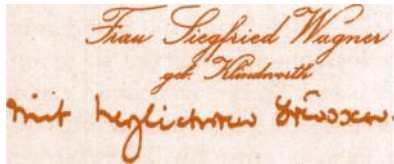 Frau Siegfried Wagner
geb. Klindworth
mit herzlichen Grüssen.